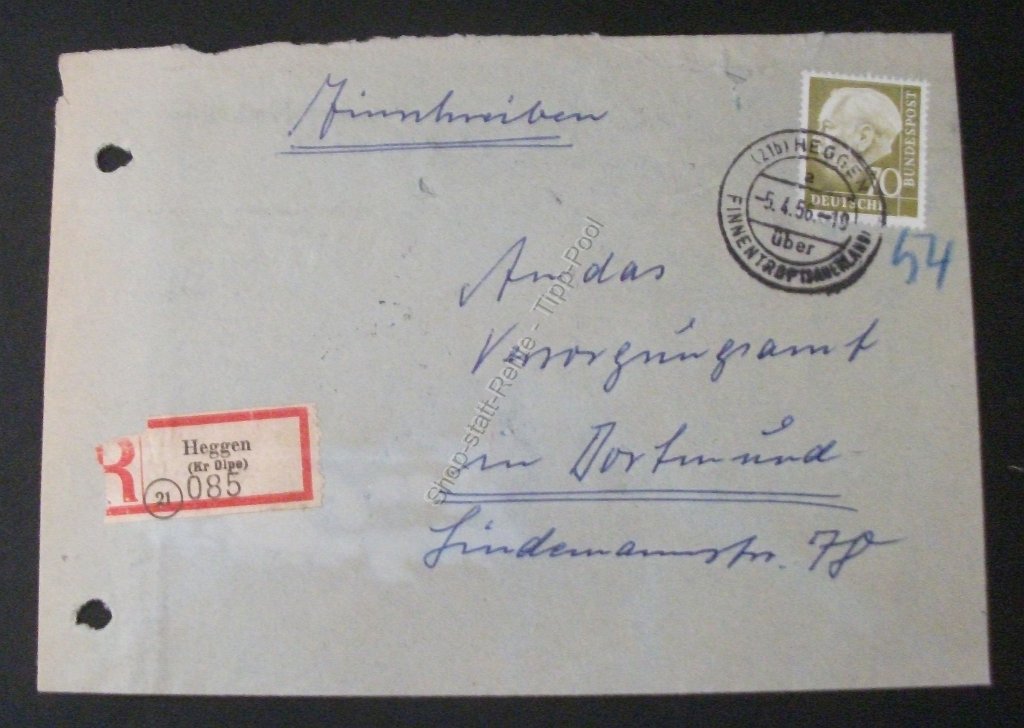 Einschreiben
70
BUNDESPOST
DEUTSCHE
(21b) HEGGEN
a
-5.4.56.-19
über
FINNENTROP (SAUERLAND)
54
An das
Versorgungsamt
in Dortmund
Lindemannstr. 78
R
Heggen
(Kr Olpe)
21
085
Shop-statt-Rente - Tipp-Pool